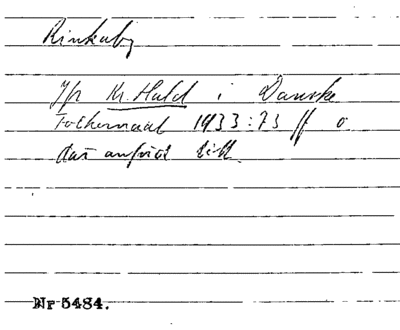 Rinkaby
Jfr Kr. Hald i Danske
Folkemaal 1933:73 ff o
där anförd litt
Nr 5484.